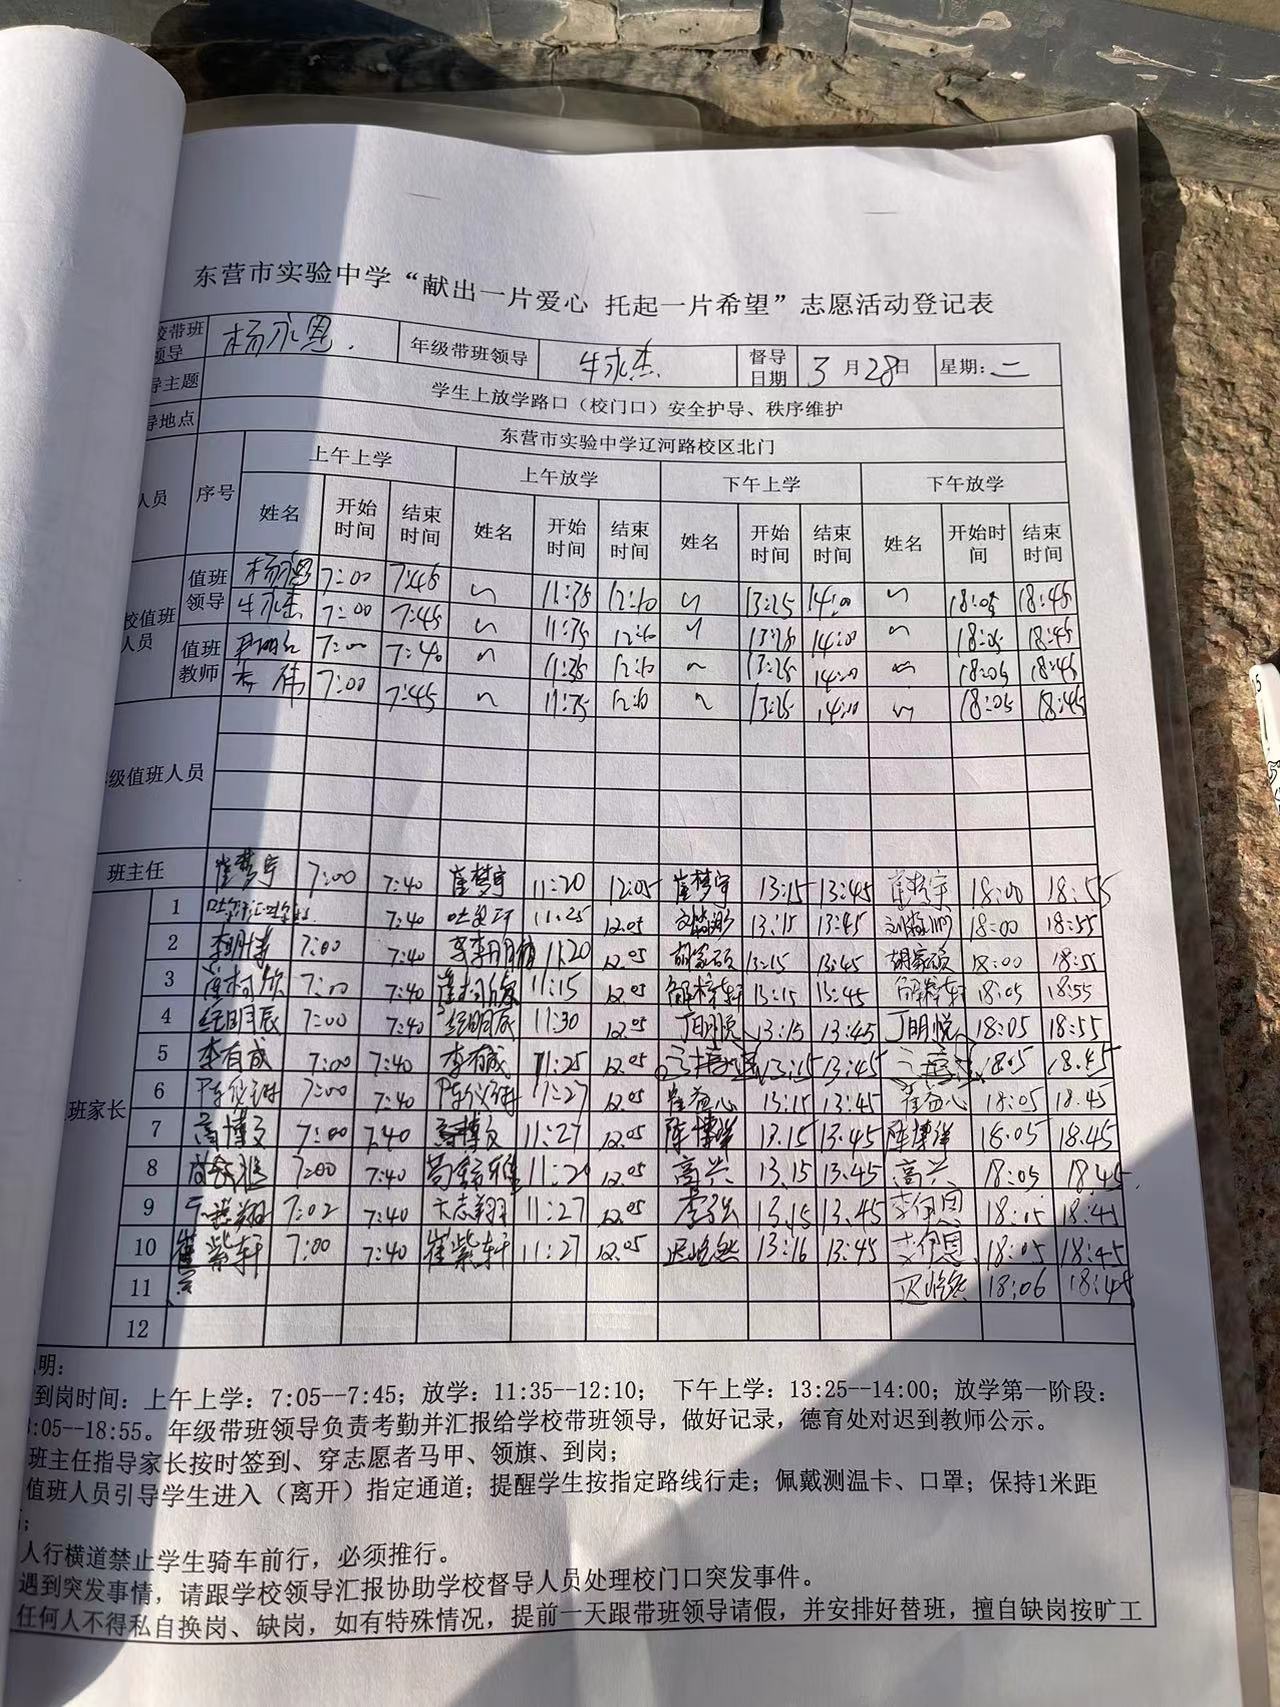 东营市实验中学“献出一片爱心 托起一片希望”志愿活动登记表
校带班领导 杨永恩 年级带班领导 牛永杰 督导日期 3月28日 星期:二
导主题 学生上放学路口（校门口）安全护导、秩序维护
导地点 东营市实验中学辽河路校区北门
人员 序号 上午上学 上午放学 下午上学 下午放学
姓名 开始时间 结束时间 姓名 开始时间 结束时间 姓名 开始时间 结束时间 姓名 开始时间 结束时间
校值班人员 值班领导 杨永恩 7:00 7:45 11:35 12:10 13:25 14:00 18:05 18:45
牛永杰 7:00 7:45 11:35 12:10 13:25 14:00 18:05 18:45
值班教师 7:00 7:40 11:35 12:10 13:25 14:00 18:05 18:45
李伟 7:00 7:45 11:35 12:10 13:25 14:00 18:05 18:45
级值班人员
班主任 崔梦宇 7:00 7:40 崔梦宇 11:20 12:05 崔梦宇 13:15 13:45 崔梦宇 18:00 18:55
班家长
1 7:40 11:25 12.05 13:15 13:45 18:00 18:55
2 7:00 7:40 11:20 12.05 胡家硕 13:15 13:45 胡家硕 18:00 18:55
3 7:00 7:40 11:15 12.05 解梓轩 13:15 13:45 解梓轩 18:05 18:55
4 7:00 7:40 11:30 12.05 丁明悦 13:15 13:45 丁明悦 18:05 18:55
5 李有成 7:00 7:40 李有成 11:25 12.05 13:15 13:45 18:05 18.45
6 7:00 7:40 11:27 12.05 崔益心 13:15 13:45 崔益心 18:05 18.45
7 高博文 7:00 7:40 高博文 11:27 12.05 陈博洋 13.15 13:45 陈博洋 18:05 18.45
8 7:00 7:40 11:20 12.05 高兴 13.15 13:45 高兴 18:05 18.45
9 7:02 7:40 11:27 12.05 13.15 13.45 李伊恩 18:05
10 崔紫轩 7:00 7:40 崔紫轩 11:27 12.05 迟皓然 13:16 13:45 李伊恩 18:05 18:45
11 迟皓然 18:06 18:45
12
明:
到岗时间: 上午上学: 7:05--7:45; 放学: 11:35--12:10; 下午上学: 13:25--14:00; 放学第一阶段:
:05--18:55。年级带班领导负责考勤并汇报给学校带班领导，做好记录，德育处对迟到教师公示。
班主任指导家长按时签到、穿志愿者马甲、领旗、到岗;
值班人员引导学生进入（离开）指定通道; 提醒学生按指定路线行走; 佩戴测温卡、口罩; 保持1米距
;
人行横道禁止学生骑车前行，必须推行。
遇到突发事情，请跟学校领导汇报协助学校督导人员处理校门口突发事件。
任何人不得私自换岗、缺岗，如有特殊情况，提前一天跟带班领导请假，并安排好替班，擅自缺岗按旷工